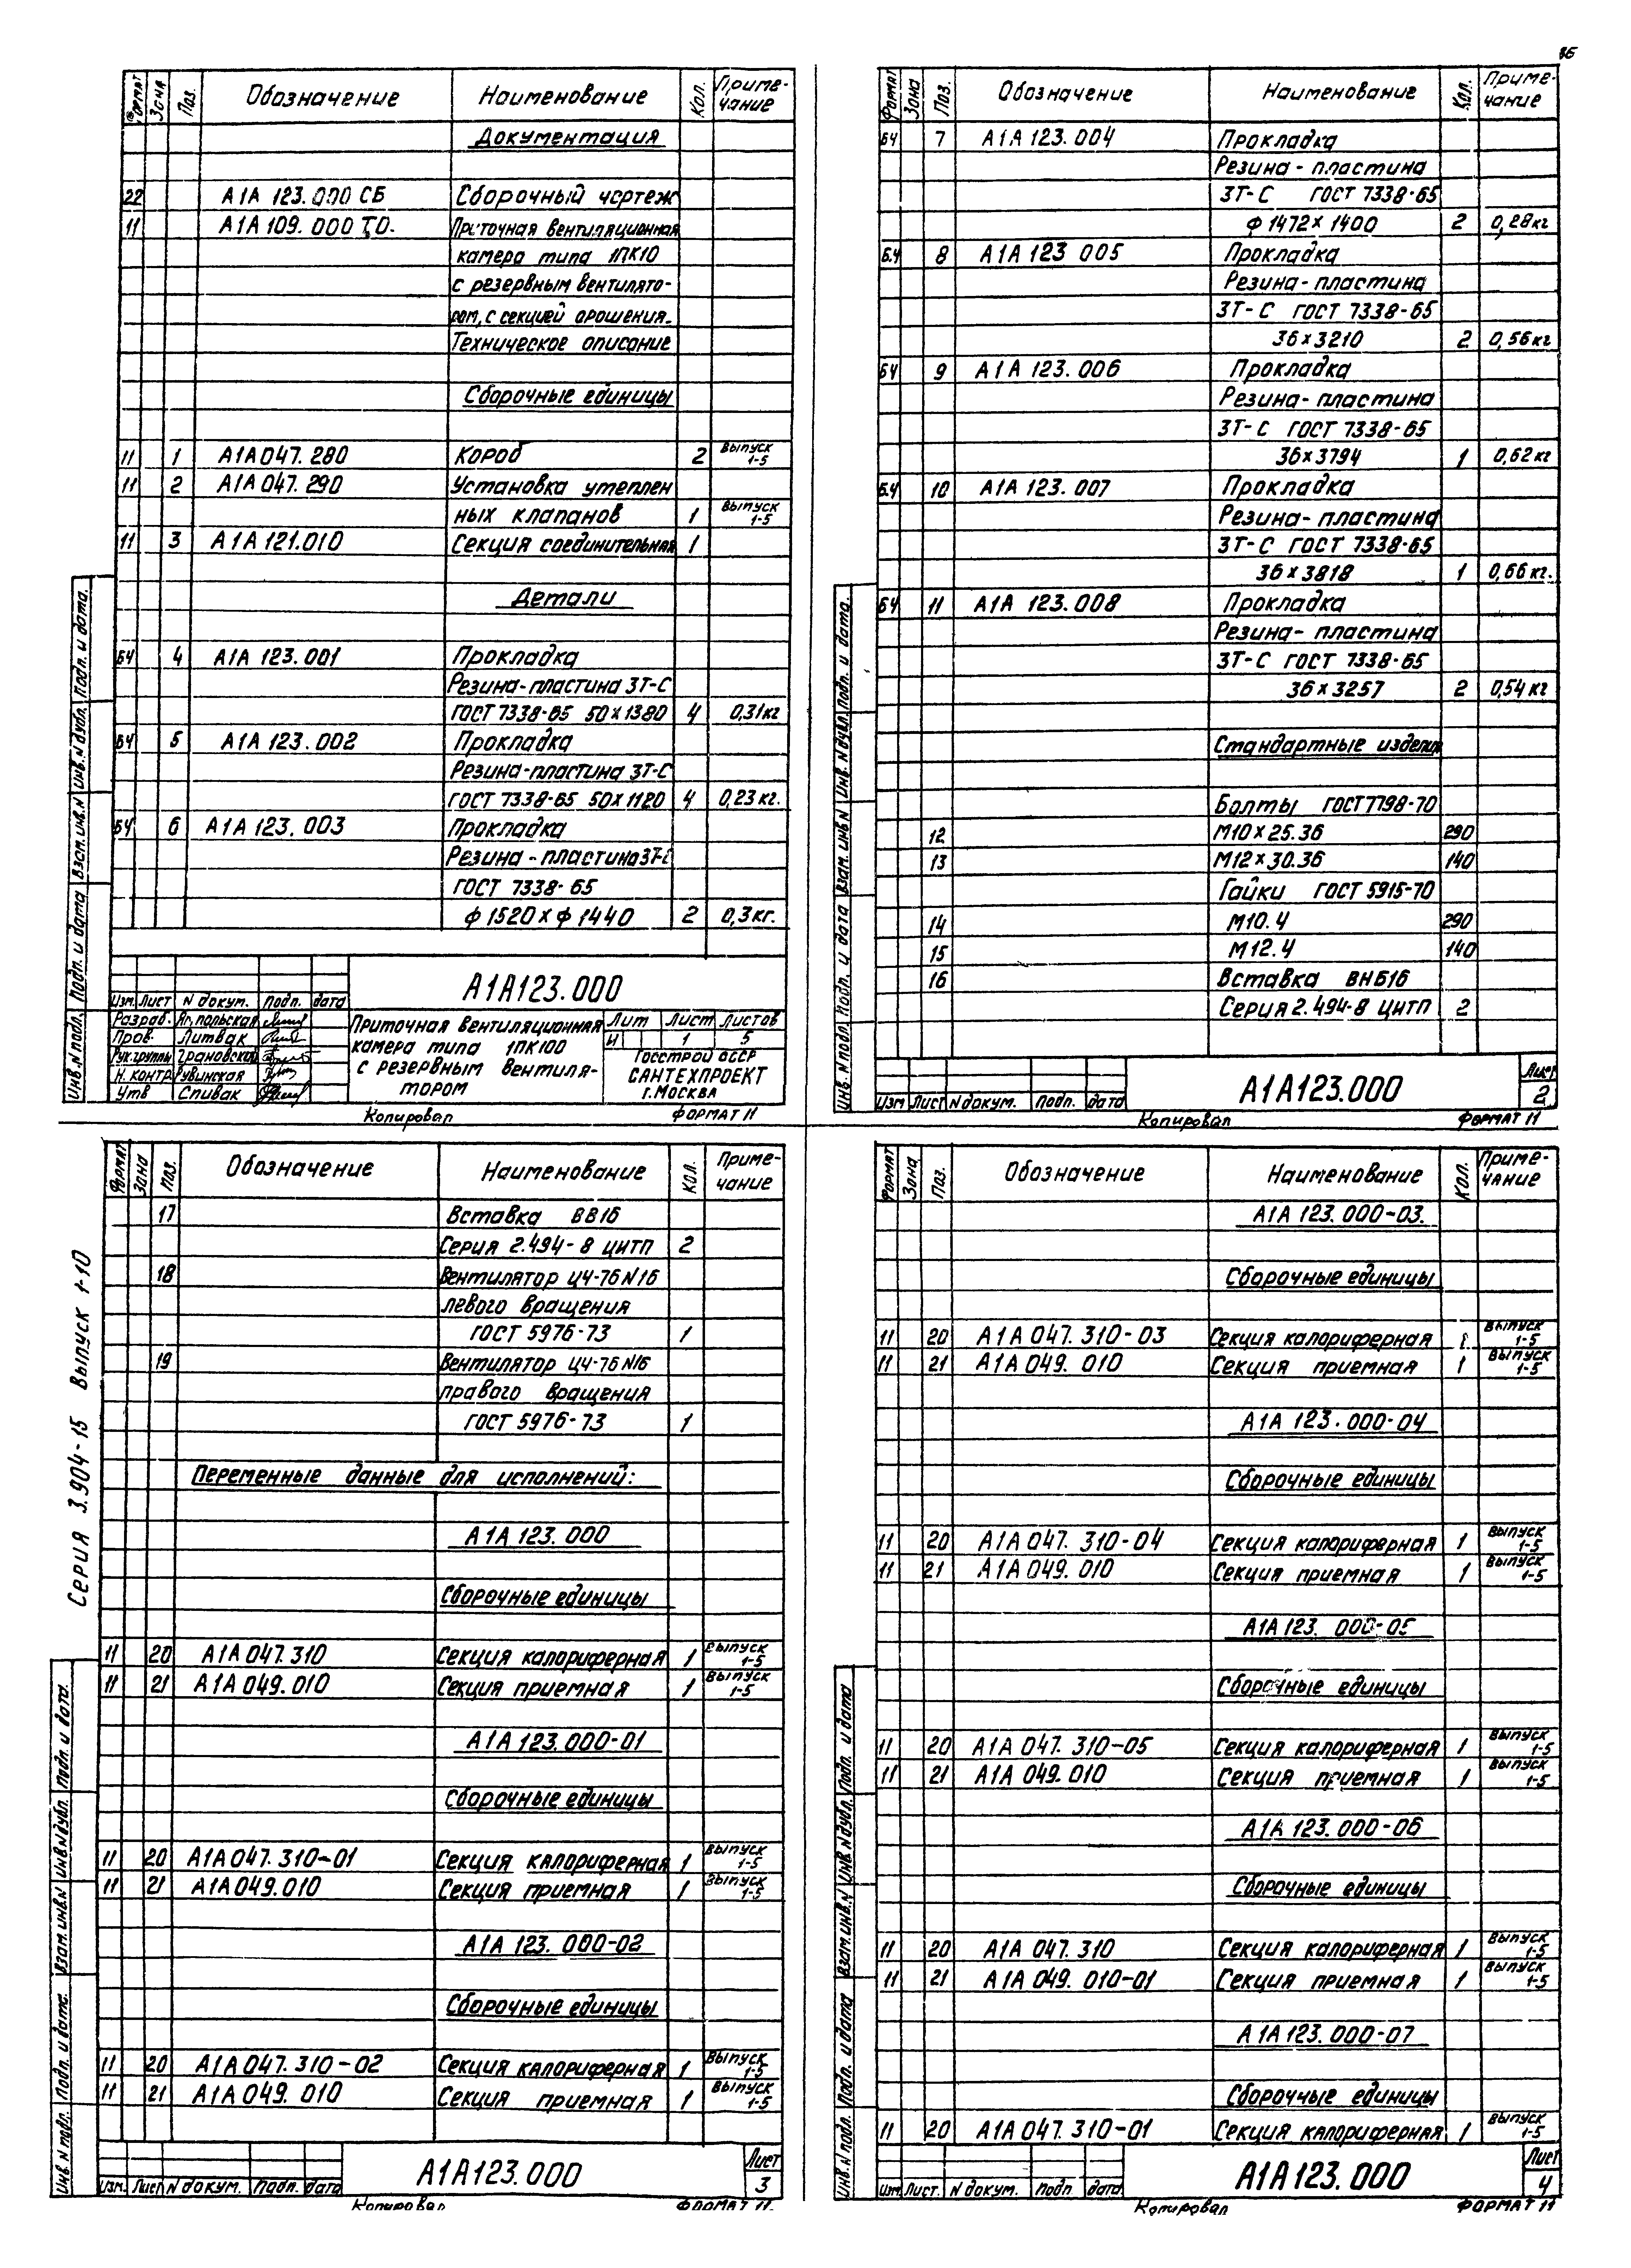 Формат Зона Поз. Обозначение Наименование Кол. Примечание
Документация
22 А1А 123.000 СБ Сборочный чертеж
11 А1А 109.000 ТО. Приточная вентиляционная
камера типа 1ПК10
с резервным вентилято-
ром, с секцией орошения.
Техническое описание
Сборочные единицы
11 1 А1А047.280 Короб 2 Выпуск 1-5
11 2 А1А047.290 Установка утеплен
ных клапанов 1 Выпуск 1-5
11 3 А1А121.010 Секция соединительная 1
Детали
БЧ 4 А1А 123.001 Прокладка
Резина-пластина 3Т-С
ГОСТ 7338-65 50х1380 4 0,31кг
БЧ 5 А1А 123.002 Прокладка
Резина-пластина 3Т-С
ГОСТ 7338-65 50х1120 4 0,23кг.
БЧ 6 А1А 123.003 Прокладка
Резина-пластина 3Т-С
ГОСТ 7338-65
ф1520хф1440 2 0,3кг.
А1А123.000
Изм. Лист N докум. Подп. дата
Разраб. Ямпольская
Пров. Литвак
Рук.группы Грановский
Н.контр. Рувинская
Утв Спивак
Приточная вентиляционная
камера типа 1ПК100
с резервным вентиля-
тором
Лит Лист Листов
И 1 5
Госстрой СССР
САНТЕХПРОЕКТ
г.Москва
Копировал ФОРМАТ 11
Инв.N подл. Подп. и дата Взам.инв.N Инв.N дубл. Подп. и дата.
Формат Зона Поз. Обозначение Наименование Кол. Примечание
БЧ 7 А1А 123.004 Прокладка
Резина-пластина
3Т-С ГОСТ 7338-65
ф1472х1400 2 0,28кг
БЧ 8 А1А 123 005 Прокладка
Резина-пластина
3Т-С ГОСТ 7338-65
36х3210 2 0,56кг
БЧ 9 А1А 123.006 Прокладка
Резина-пластина
3Т-С ГОСТ 7338-65
36х3794 1 0,62кг
БЧ 10 А1А 123.007 Прокладка
Резина-пластина
3Т-С ГОСТ 7338-65
36х3818 1 0,66кг.
БЧ 11 А1А 123.008 Прокладка
Резина-пластина
3Т-С ГОСТ 7338-65
36х3257 2 0,54кг
Стандартные изделия
Болты ГОСТ7798-70
12 М10х25.36 290
13 М12х30.36 140
Гайки ГОСТ 5915-70
14 М10.4 290
15 М12.4 140
16 Вставка ВНБ16
Серия 2.494-8 ЦИТП 2
Изм Лист N докум. Подп. дата А1А123.000 Лист 2
Копировал ФОРМАТ 11
Инв.N подл. Подп. и дата Взам.инв N Инв.N дубл. Подп. и дата.
Серия 3.904-15 Выпуск 1-10
Формат Зона Поз. Обозначение Наименование Кол. Примечание
17 Вставка ВВ16
Серия 2.494-8 ЦИТП 2
18 Вентилятор Ц4-76N16
левого вращения
ГОСТ 5976-73 1
19 Вентилятор Ц4-76N16
правого вращения
ГОСТ 5976-73 1
Переменные данные для исполнений:
А1А 123.000
Сборочные единицы
11 20 А1А 047.310 Секция калориферная 1 Выпуск 1-5
11 21 А1А 049.010 Секция приемная 1 Выпуск 1-5
А1А 123.000-01
Сборочные единицы
11 20 А1А047.310-01 Секция калориферная 1 Выпуск 1-5
11 21 А1А049.010 Секция приемная 1 Выпуск 1-5
А1А 123.000-02
Сборочные единицы
11 20 А1А047.310-02 Секция калориферная 1 Выпуск 1-5
11 21 А1А049.010 Секция приемная 1 Выпуск 1-5
Изм. Лист N докум. Подп. дата А1А123.000 Лист 3
Копировал ФОРМАТ 11.
Инв.N подл. Подп. и дата. Взам.инв.N Инв.N дубл. Подп. и дата.
Формат Зона Поз. Обозначение Наименование Кол. Примечание
А1А 123.000-03.
Сборочные единицы
11 20 А1А 047.310-03 Секция калориферная 1 Выпуск 1-5
11 21 А1А 049.010 Секция приемная 1 Выпуск 1-5
А1А 123.000-04
Сборочные единицы
11 20 А1А 047.310-04 Секция калориферная 1 Выпуск 1-5
11 21 А1А 049.010 Секция приемная 1 Выпуск 1-5
А1А 123.000-05
Сборочные единицы
11 20 А1А 047.310-05 Секция калориферная 1 Выпуск 1-5
11 21 А1А 049.010 Секция приемная 1 Выпуск 1-5
А1А 123.000-06
Сборочные единицы
11 20 А1А 047.310 Секция калориферная 1 Выпуск 1-5
11 21 А1А 049.010-01 Секция приемная 1 Выпуск 1-5
А1А123.000-07
Сборочные единицы
11 20 А1А 047.310-01 Секция калориферная 1 Выпуск 1-5
Изм Лист. N докум. Подп дата А1А123.000 Лист 4
Копировал ФОРМАТ 11
Инв.N подл. Подп. и дата Взам.инв.N Инв.N дубл. Подп. и дата